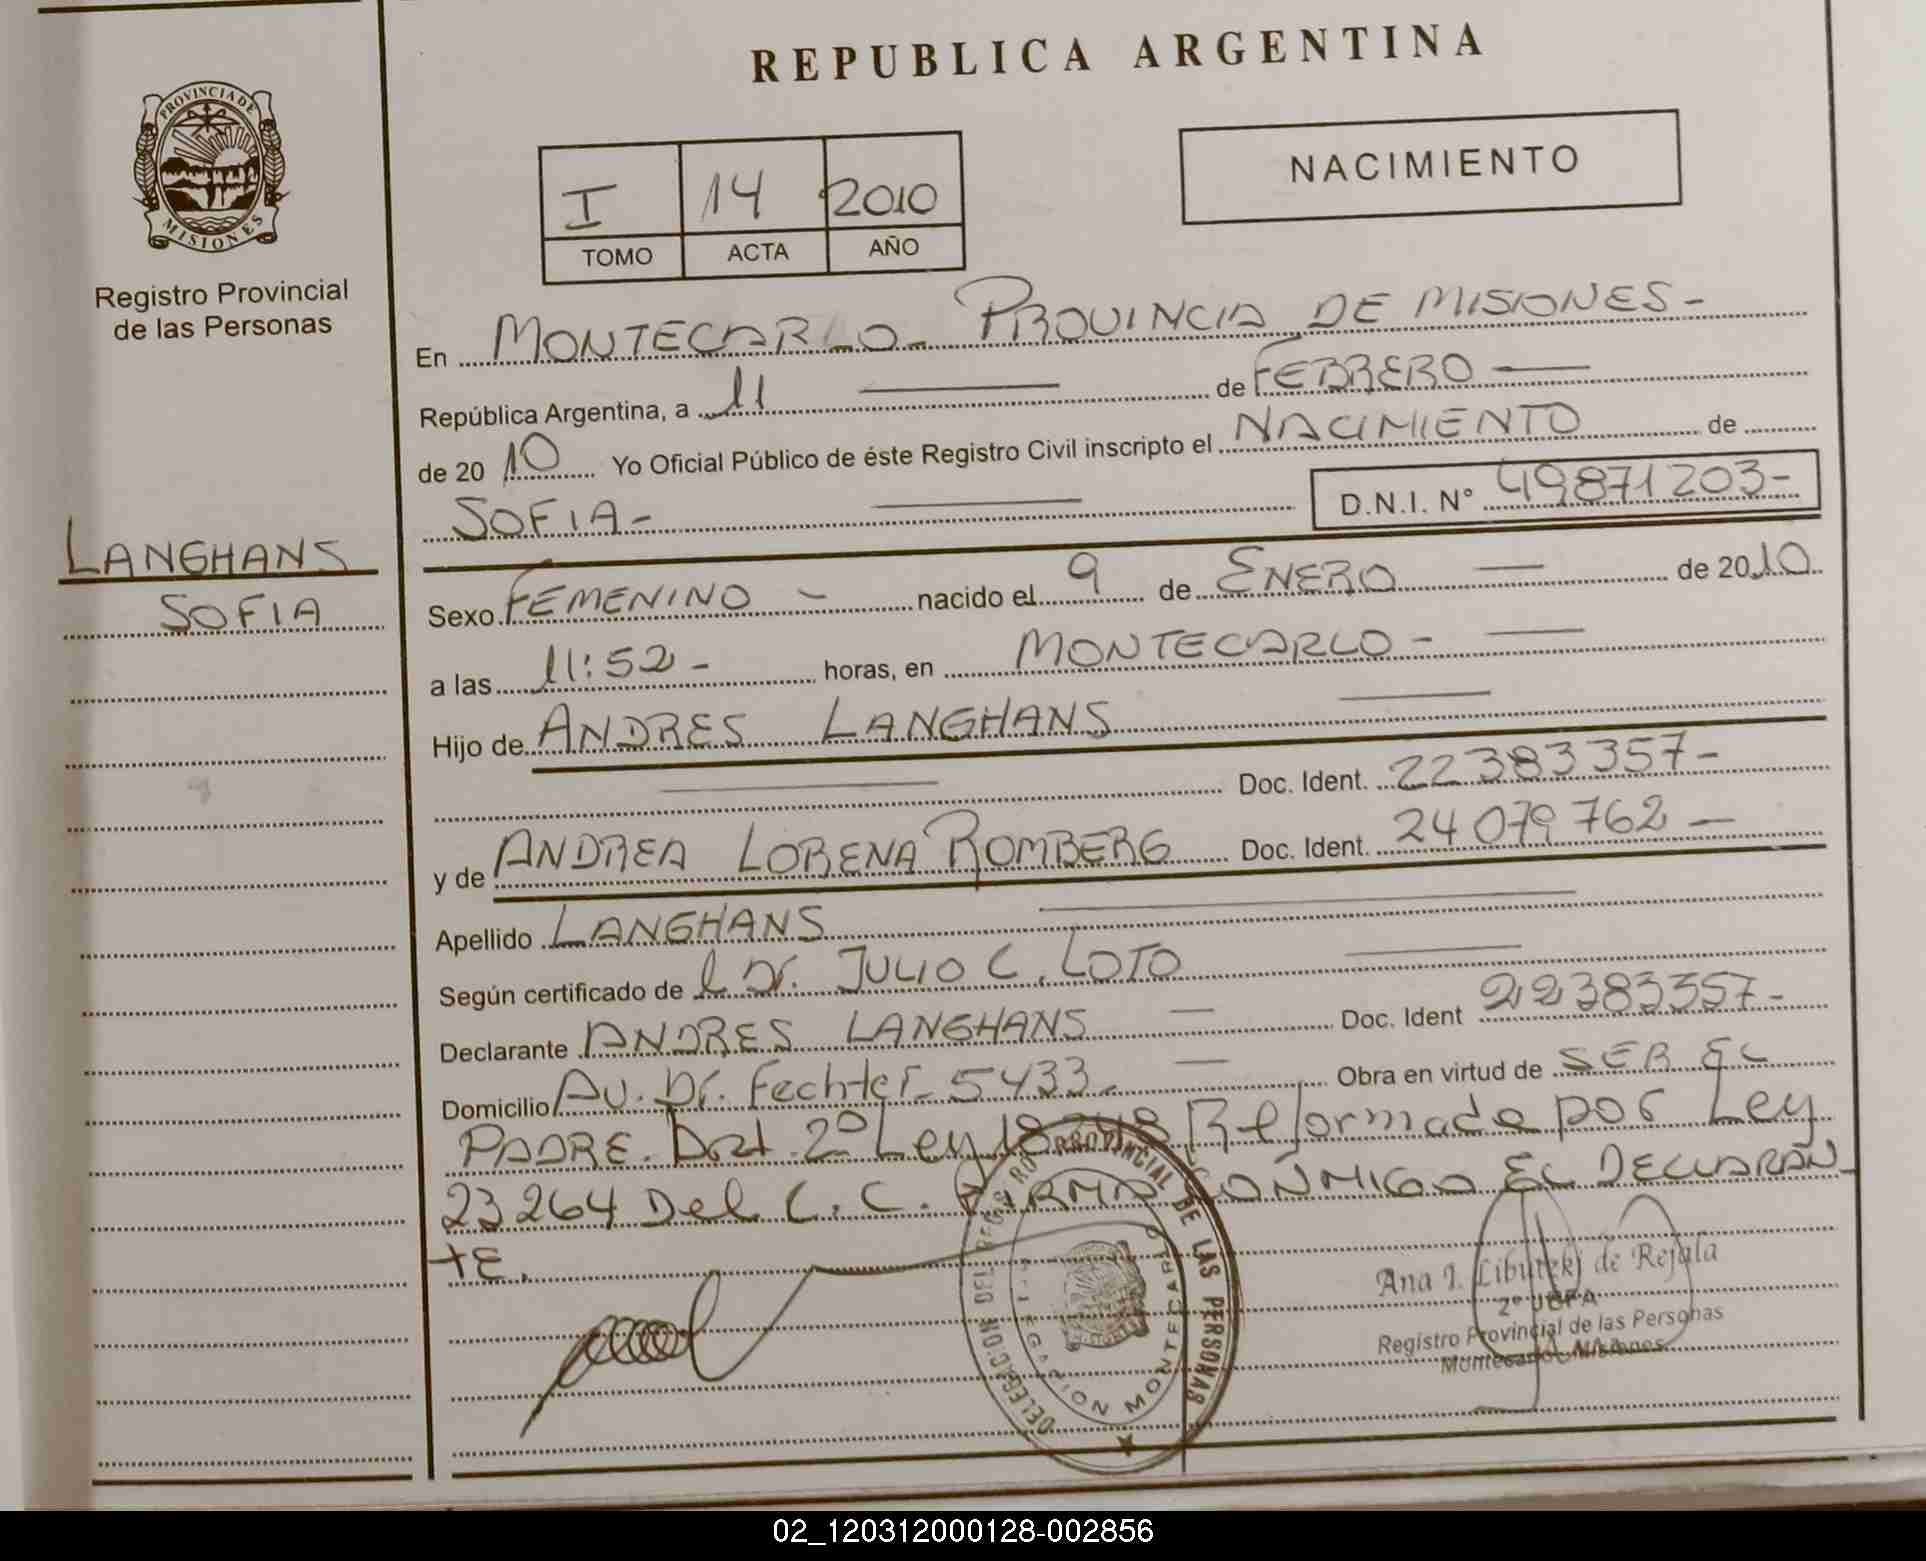 REPUBLICA ARGENTINA
PROVINCIA DE
MISIONES
Registro Provincial
de las Personas
I 14 2010
TOMO ACTA AÑO
NACIMIENTO
En MONTECARLO - PROVINCIA DE MISIONES -
República Argentina, a 11 de FEBRERO
de 20 10 Yo Oficial Público de éste Registro Civil inscripto el NACIMIENTO de
SOFIA - D.N.I. N° 49871203-
LANGHANS
SOFIA
Sexo FEMENINO - nacido el 9 de ENERO de 2010
a las 11:52 - horas, en MONTECARLO -
Hijo de ANDRES LANGHANS
Doc. Ident. 22383357-
y de ANDREA LORENA ROMBERG Doc. Ident. 24079762 -
Apellido LANGHANS
Según certificado de l Dr. JULIO C. LOTO
Declarante ANDRES LANGHANS Doc. Ident 22383357-
Domicilio AV. Dr. Fechter 5433- Obra en virtud de SER EL
PADRE. Art. 2° Ley Reformada por Ley
23264 Del C. C. FIRMA CONMIGO EL DECLARAN
TE.
REGISTRO PROVINCIAL DE LAS PERSONAS
DELEGACION MONTECARLO
Ana I. de Rejala
2° JEFA
Registro Provincial de las Personas
Montecarlo - Misiones
02_120312000128-002856